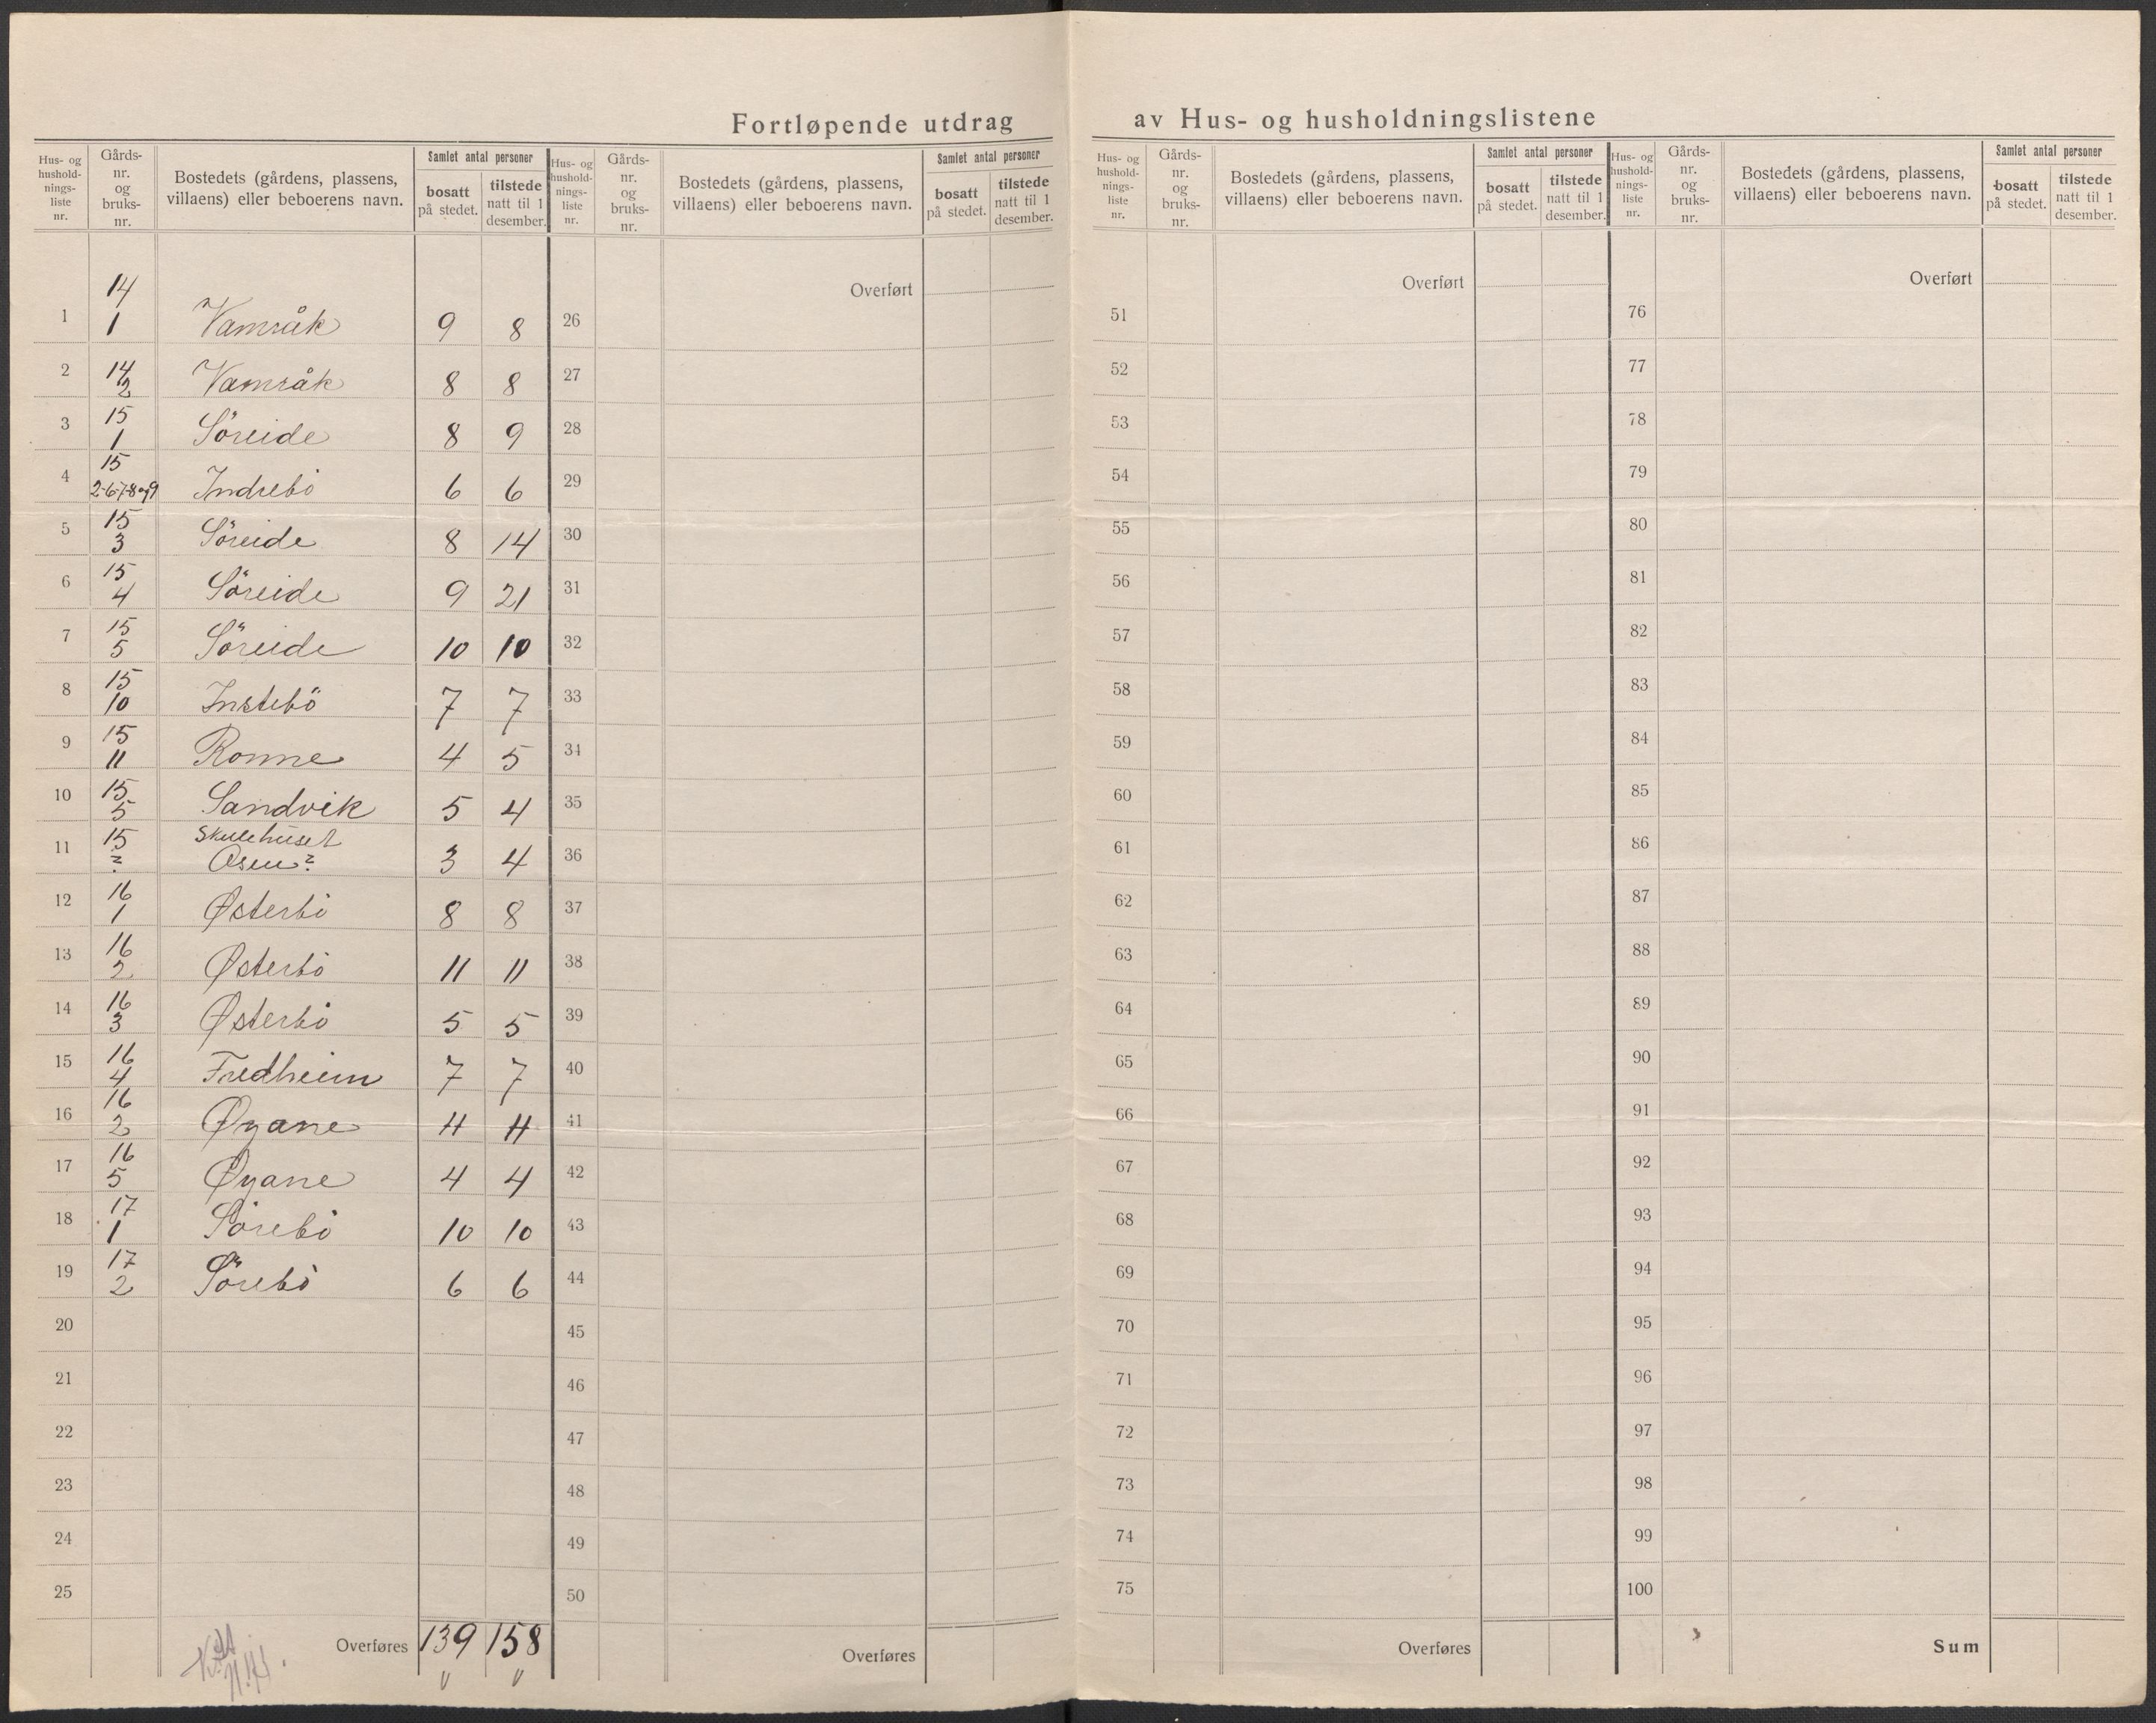 Fortløpende utdrag av Hus- og husholdningslistene
Hus- og hushold-nings-liste nr. Gårds-nr. og bruks-nr. Bostedets (gårdens, plassens, villaens) eller beboerens navn. Samlet antal personer bosatt på stedet. tilstede natt til 1 desember.
1 14/1 Vamråk 9 8
2 14/2 Vamråk 8 8
3 15/1 Söreide 8 9
4 15/2-6-7-8 og 9 Indrebö 6 6
5 15/3 Söreide 8 14
6 15/4 Söreide 9 21
7 15/5 Söreide 10 10
8 15/10 Instebö 7 7
9 15/11 Ronne 4 5
10 15/5 Sandvik 5 4
11 15/? Skulehuset Osen? 3 4
12 16/1 Østerbö 8 8
13 16/2 Østerbö 11 11
14 16/3 Østerbö 5 5
15 16/4 Fredheim 7 7
16 16/2 Øyane 11 11
17 16/5 Øyane 4 4
18 17/1 Sörebö 10 10
19 17/2 Sörebö 6 6
20
21
22
23
24
25
Overføres 139 158
Hus- og hushold-nings-liste nr. Gårds-nr. og bruks-nr. Bostedets (gårdens, plassens, villaens) eller beboerens navn. Samlet antal personer bosatt på stedet. tilstede natt til 1 desember.
Overført
26
27
28
29
30
31
32
33
34
35
36
37
38
39
40
41
42
43
44
45
46
47
48
49
50
Overføres
Hus- og hushold-nings-liste nr. Gårds-nr. og bruks-nr. Bostedets (gårdens, plassens, villaens) eller beboerens navn. Samlet antal personer bosatt på stedet. tilstede natt til 1 desember.
Overført
51
52
53
54
55
56
57
58
59
60
61
62
63
64
65
66
67
68
69
70
71
72
73
74
75
Overføres
Hus- og hushold-nings-liste nr. Gårds-nr. og bruks-nr. Bostedets (gårdens, plassens, villaens) eller beboerens navn. Samlet antal personer bosatt på stedet. tilstede natt til 1 desember.
Overført
76
77
78
79
80
81
82
83
84
85
86
87
88
89
90
91
92
93
94
95
96
97
98
99
100
Sum